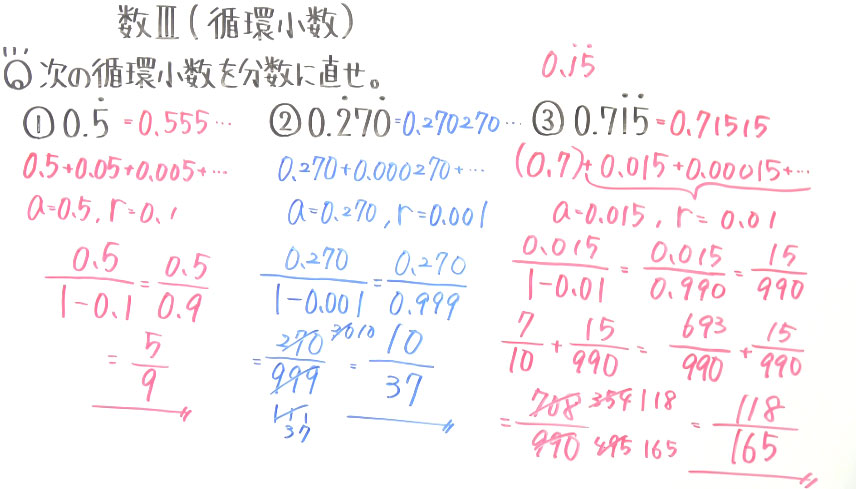 数Ⅲ(循環小数)
Q 次の循環小数を分数に直せ。
0.1̇5̇
① 0.5̇ = 0.555…
0.5+0.05+0.005+…
a=0.5, r=0.1
0.5/(1-0.1) = 0.5/0.9
= 5/9
② 0.2̇70̇ = 0.270270…
0.270+0.000270+…
a=0.270, r=0.001
0.270/(1-0.001) = 0.270/0.999
= 270/999 = 10/37
30 10
111
37
③ 0.71̇5̇ = 0.71515
(0.7)+0.015+0.00015+…
a=0.015, r=0.01
0.015/(1-0.01) = 0.015/0.990 = 15/990
7/10 + 15/990 = 693/990 + 15/990
= 708/990 = 118/165
354 118
495 165